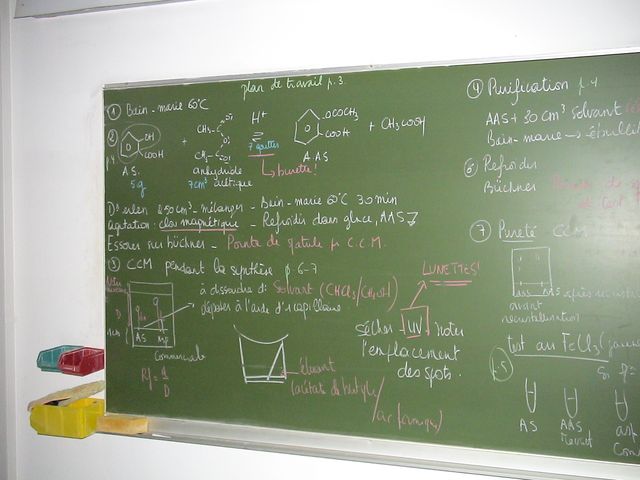 plan de travail p.3
① Bain-marie 60°C
②
p.4
OH
COOH
A.S.
5g
+
CH₃-C
O
CH₃-C
anhydride
7cm³ acétique
H⁺
⇌
7 gouttes
↳ burette!
OCOCH₃
COOH
A.A.S
+ CH₃COOH
Ds erlen à 50cm³ - mélanger - Bain-marie 60°C 30 min
Agitation: clou magnétique - Refroidir dans glace, AAS
Essorer sur büchner - Pointe de spatule pr C.C.M.
③ CCM pendant la synthèse p.6-7
à dissoudre ds Solvant (CHCl₃/CH₃OH)
déposer à l'aide d'1 capillaire
D
1cm
AS
Commerciale
Rf = d/D
LUNETTES!
sécher UV noter
l'emplacement
des spots.
éluant
(acétate de butyle/
ac formique)
④ Purification p.4
AAS + 30 cm³ solvant
Bain-marie → ébullit
⑥ Refroidir
Büchner Pointe de
et test
⑦ Pureté CCM
AAS après recrist
avant
recristallisation
test au FeCl₃ (jaune
p.5
Si
AS
AAS
avt